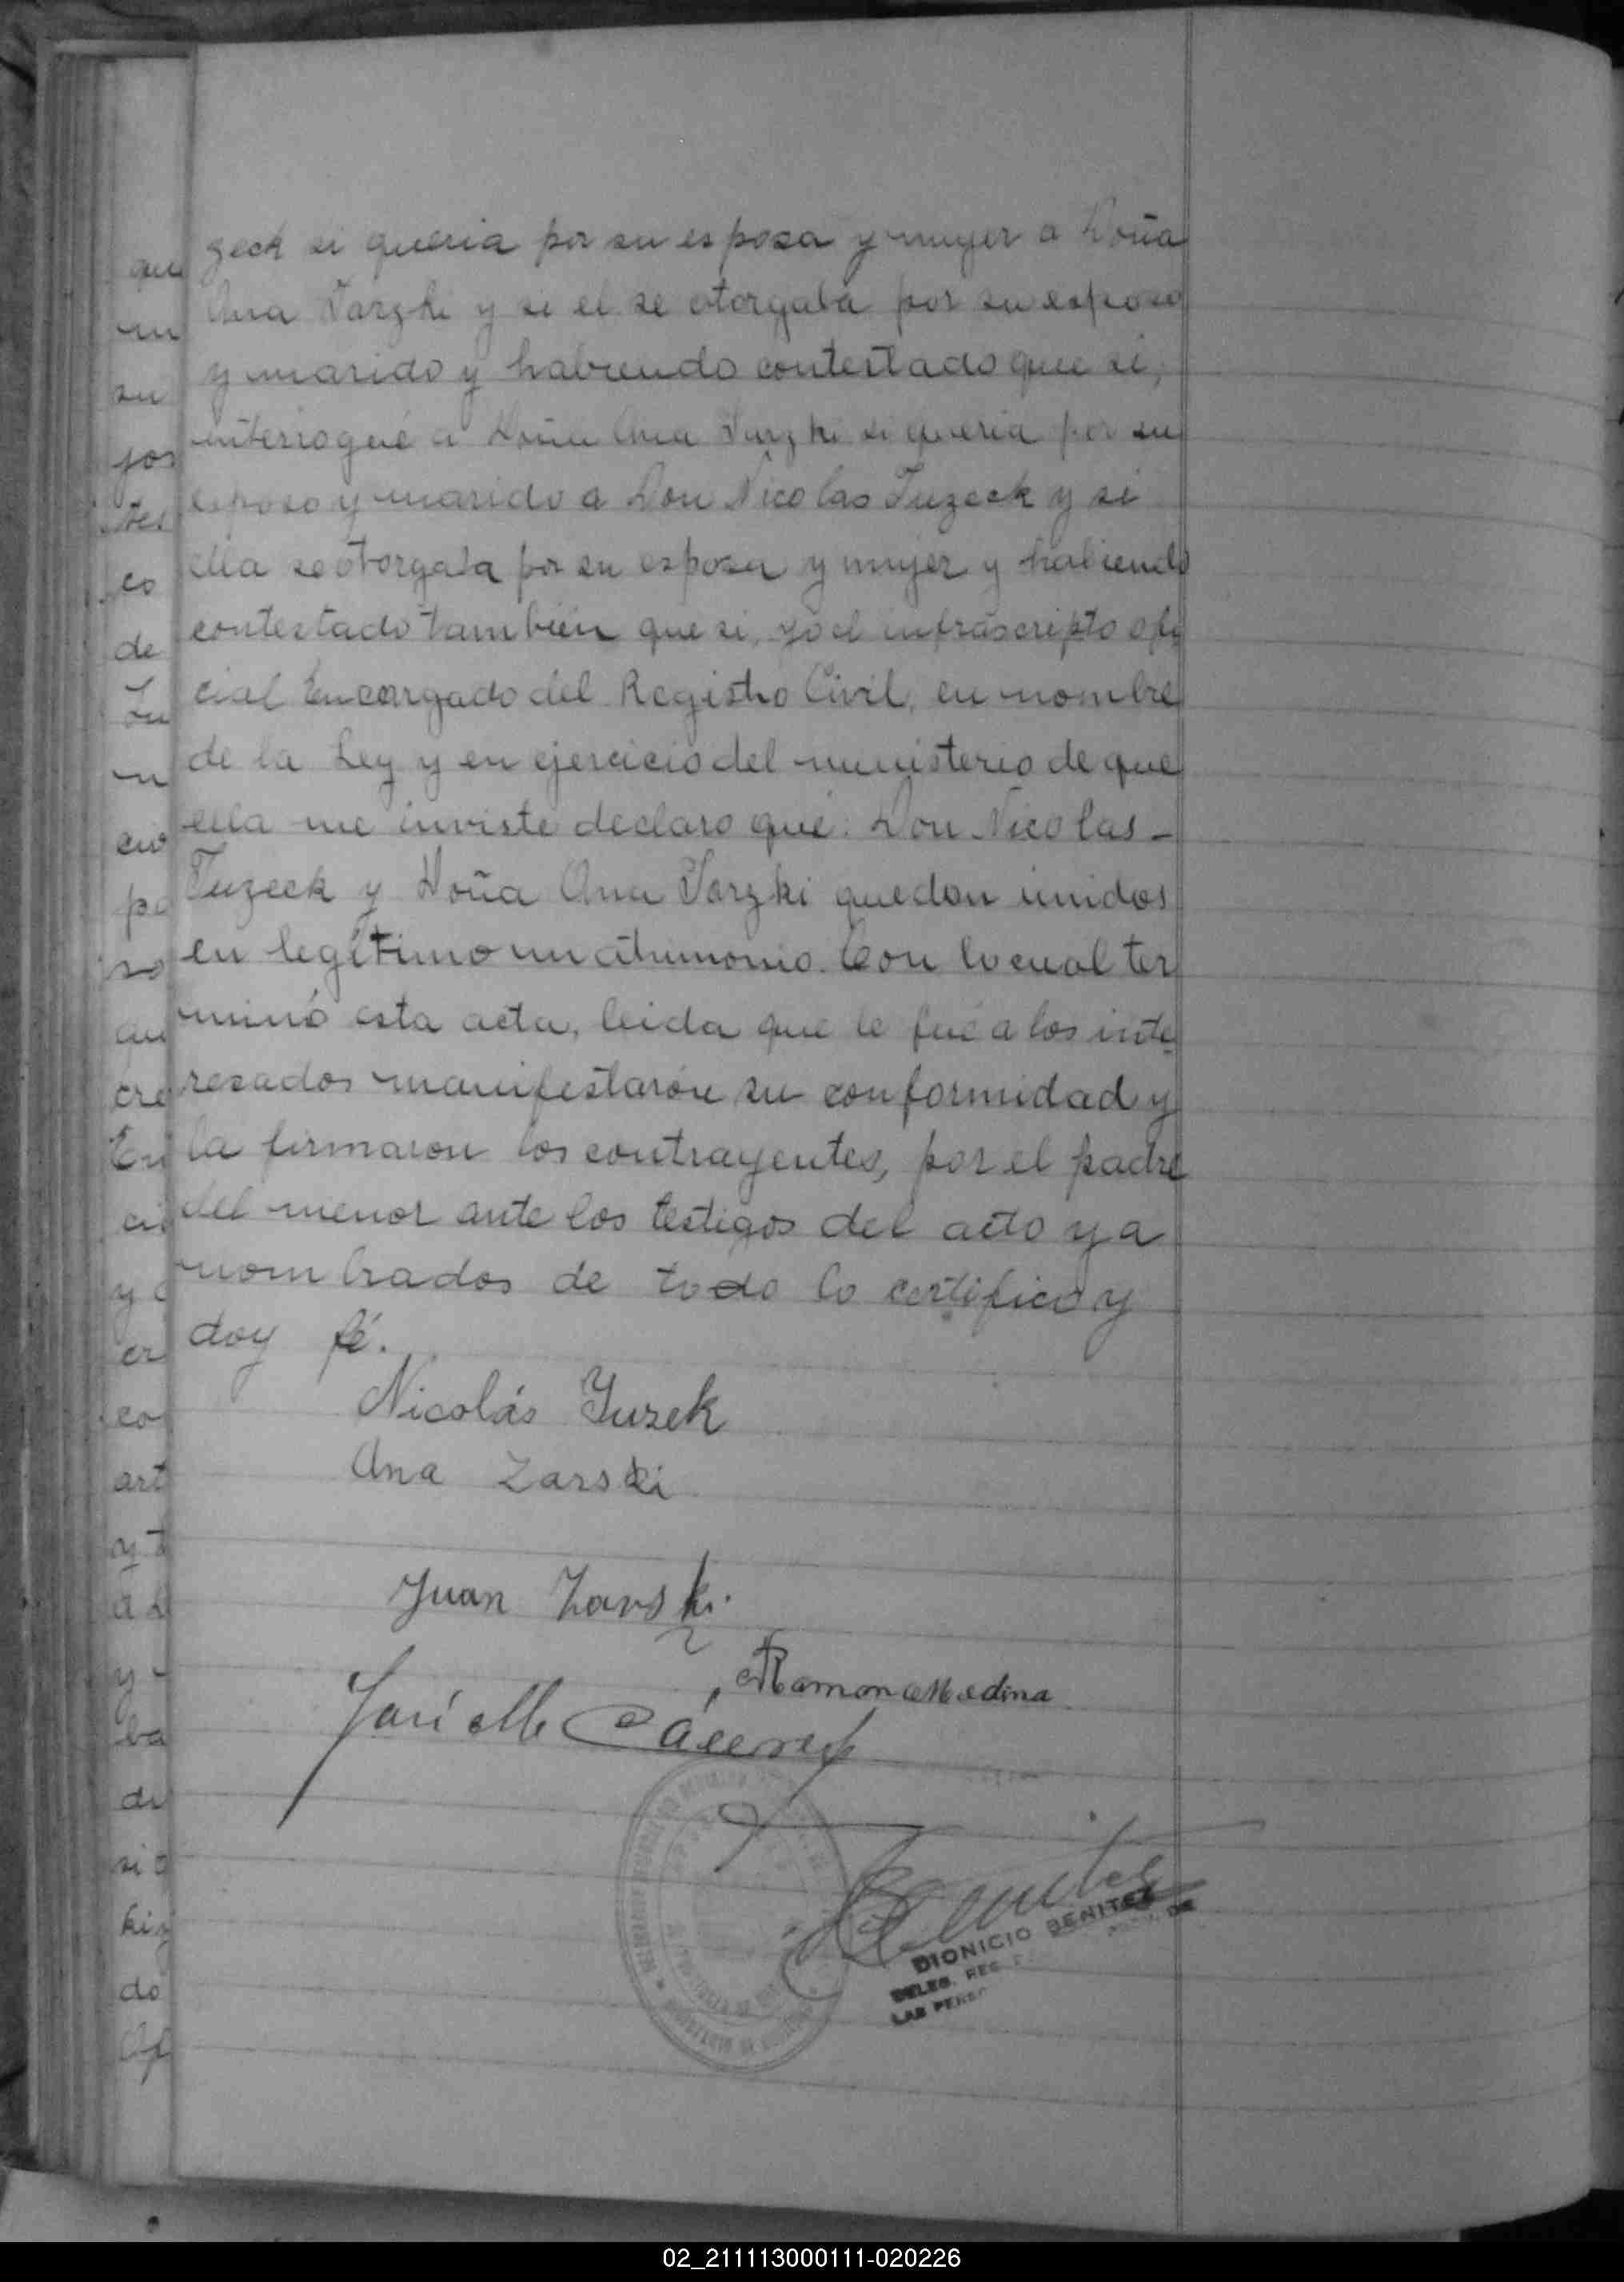 zeck si queria por su esposa y mujer a Doña
Ana Zarzki y si el se otorgaba por su esposo
y marido y habiendo contestado que si,
interrogué a Doña Ana Zarzki si queria por su
esposo y marido a Don Nicolas Tuzeck y si
ella se otorgaba por su esposa y mujer y habiendo
contestado también que si, yo el infrascripto ofi
cial Encargado del Registro Civil, en nombre
de la Ley y en ejercicio del ministerio de que
ella me inviste declaro que: Don Nicolas -
Tuzeek y Doña Ana Zarzki quedan unidos
en legítimo matrimonio. Con lo cual ter
minó esta acta, leida que le fué a los inte
resados manifestarón su conformidad y
la firmaron los contrayentes, por el padre
del menor ante los testigos del acto ya
nombrados de todo lo certifico y
doy fé.
Nicolás Yuzek
Ana Zarski
Juan Zarski.
Ramon Medina
José M Cáceres
DIONICIO BENITEZ
DELEG. REG. DE
LAS PERSO
qu
un
su
jos
tes
co
de
su
cio
po
so
cre
En
y
er
co
art
y
a
y -
ba
de
si
ki
do
02_211113000111-020226